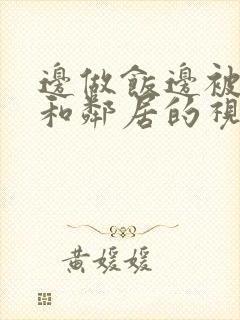 邊做飯邊被
和鄰居的視
黃媛媛